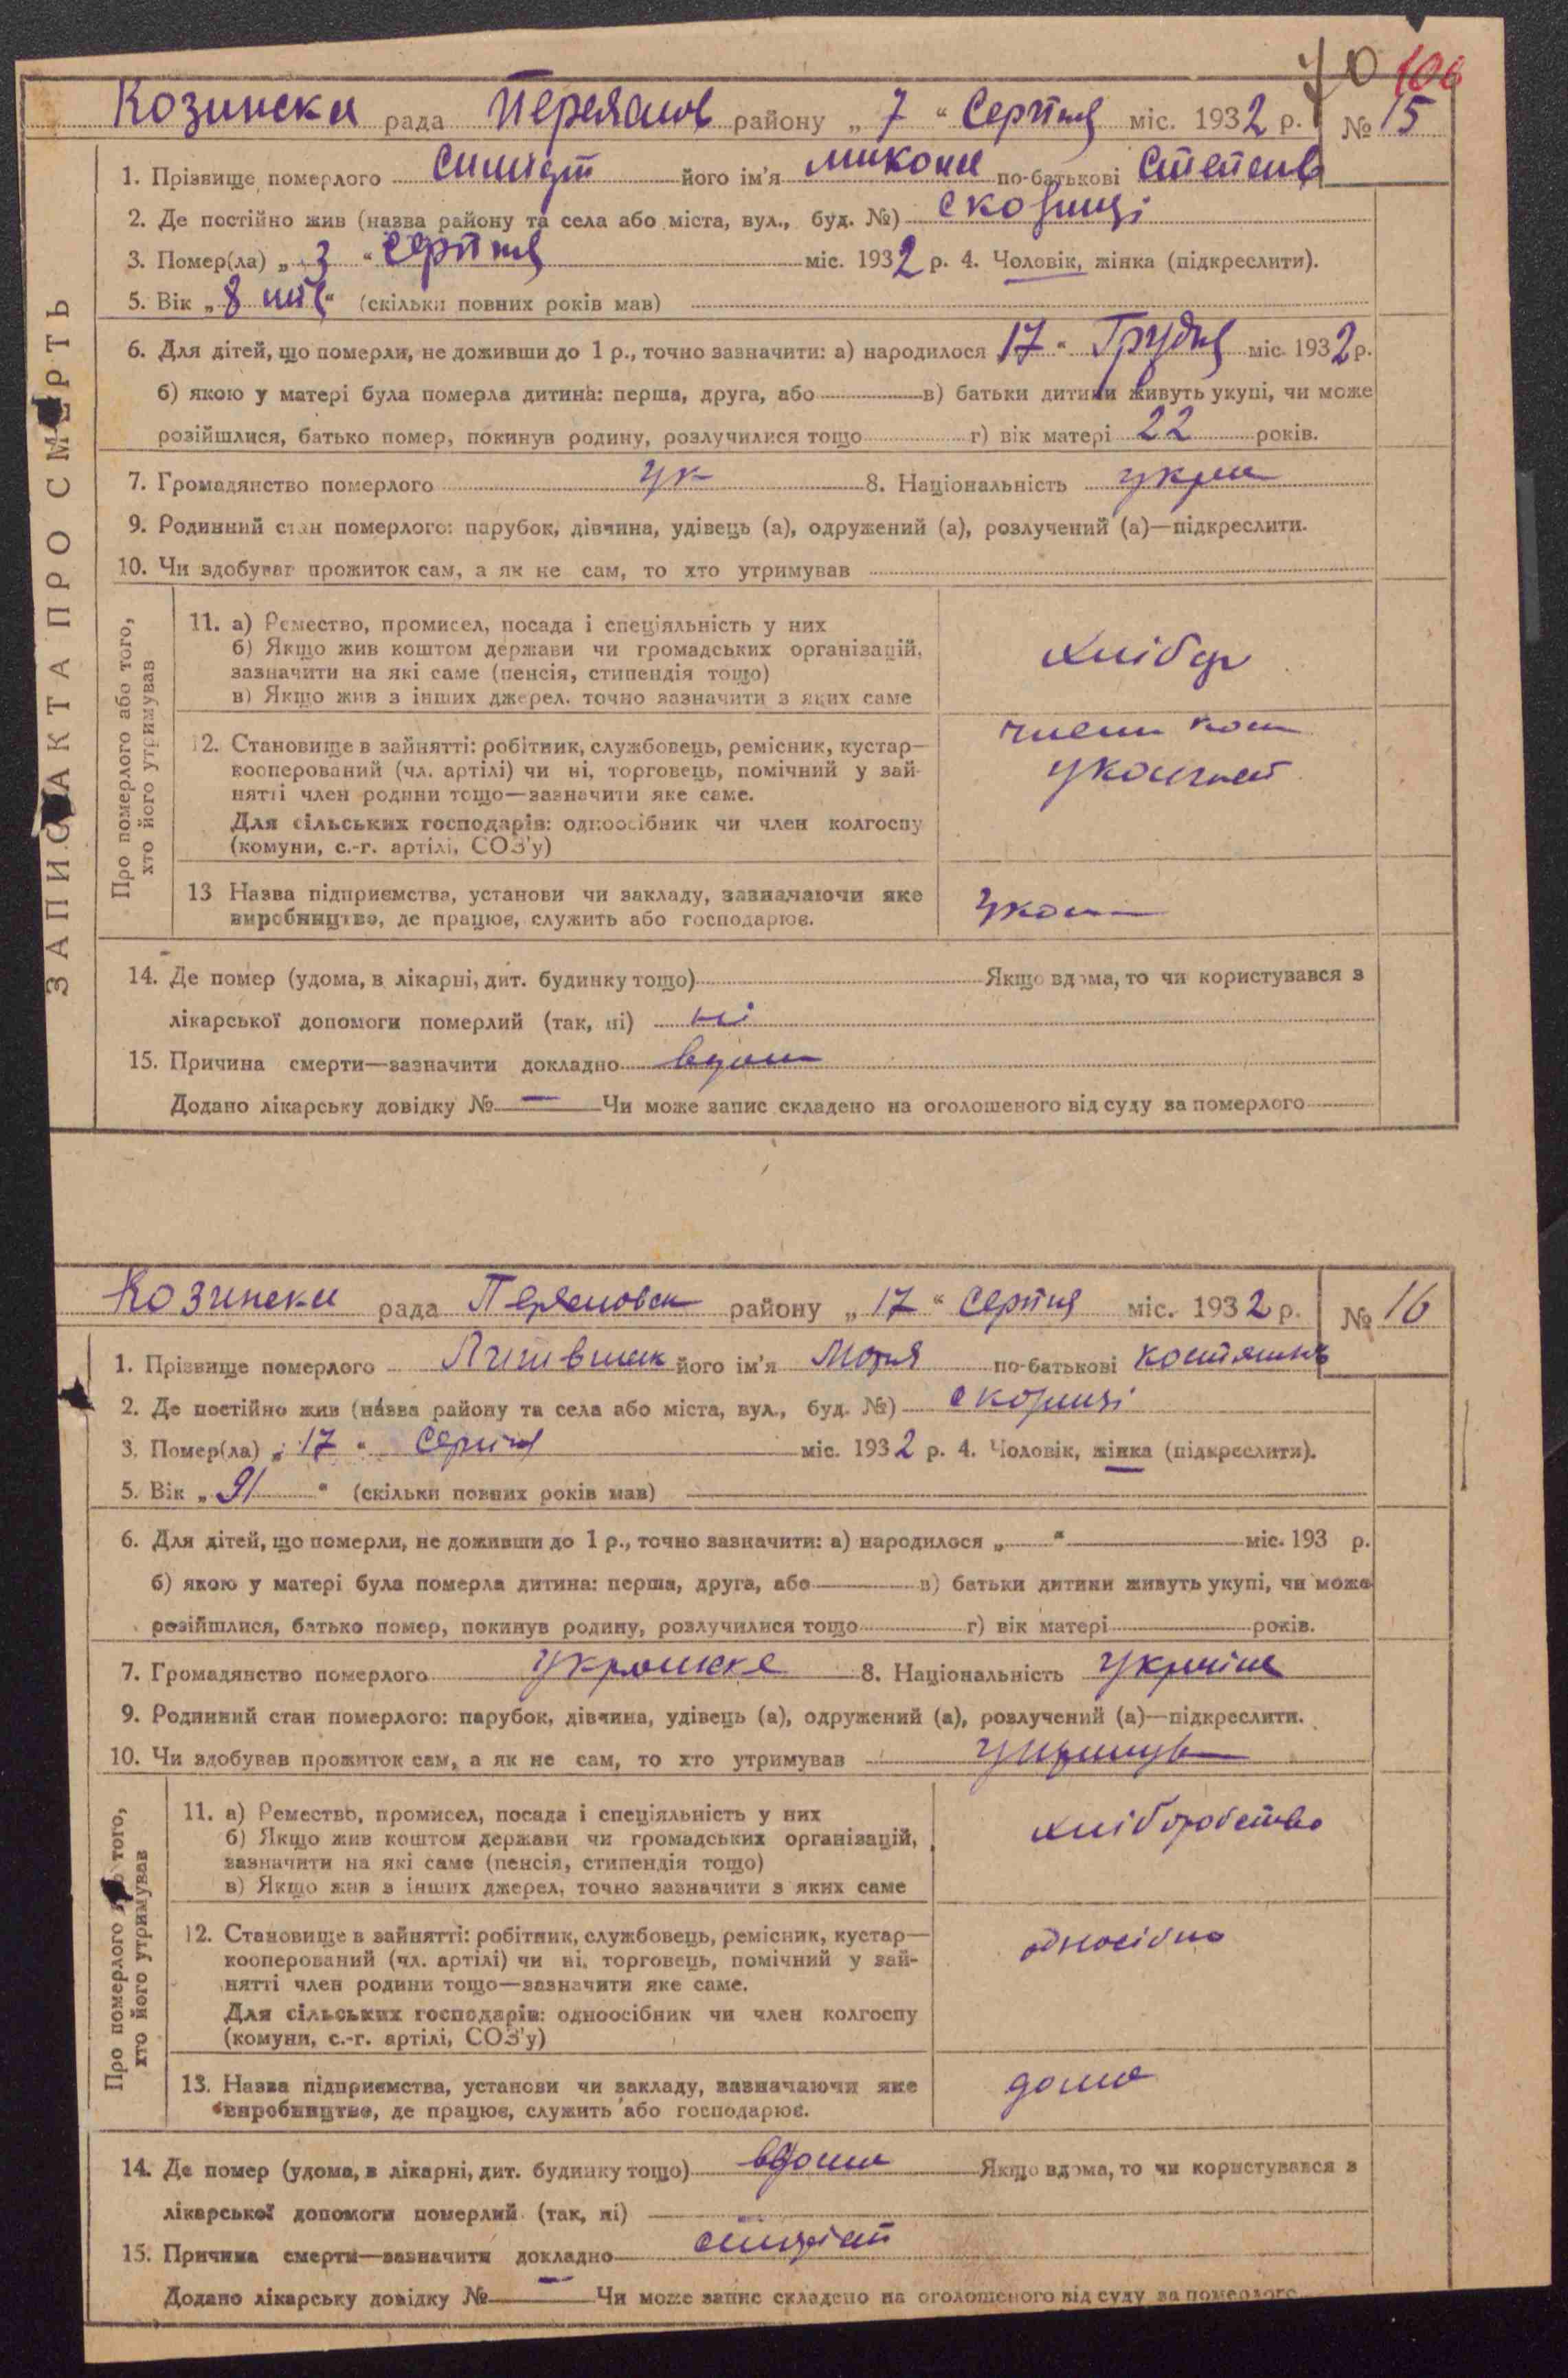 70 106
Козинска рада Переяслов районy „ 7 “ Серпня міс. 1932 р. № 15
1. Прізвище померлого його ім'я Микола по-батькові Степанов
2. Де постійно жив (назва району та села або міста, вул., буд. №) с козинці
3. Помер(ла) „ 3 “ Серпня міс. 1932 р. 4. Чоловік, жінка (підкреслити).
5. Вік „ 8 міс “ (скільки повних років мав)
6. Для дітей, що померли, не доживши до 1 р., точно зазначити: а) народилося 17 “ Грудня міс. 1932 р.
б) якою у матері була померла дитина: перша, друга, або в) батьки дитини живуть укупі, чи може
розійшлися, батько помер, покинув родину, розлучилися тощо г) вік матері 22 років.
7. Громадянство померлого ук 8. Національність укра
9. Родинний стан померлого: парубок, дівчина, удівець (а), одружений (а), розлучений (а)—підкреслити.
10. Чи здобував прожиток сам, а як не сам, то хто утримував
ЗАПИС АКТА ПРО СМЕРТЬ
Про померлого або того,
хто його утримував
11. а) Ремество, промисел, посада і спеціяльність у них
б) Якщо жив коштом держави чи громадських організацій,
зазначити на які саме (пенсія, стипендія тощо)
в) Якщо жив з інших джерел, точно зазначити з яких саме
хлібор
12. Становище в зайнятті: робітник, службовець, ремісник, кустар—
кооперований (чл. артілі) чи ні, торговець, помічний у зай-
нятті член родини тощо—зазначити яке саме.
Для сільських господарів: одноосібник чи член колгоспу
(комуни, с.-г. артілі, СОЗ'у)
член кол
уколгоспі
13 Назва підприємства, установи чи закладу, зазначаючи яке
виробництво, де працює, служить або господарює.
укол
14. Де помер (удома, в лікарні, дит. будинку тощо) Якщо вдома, то чи користувався з
лікарської допомоги померлий (так, ні) ні
15. Причина смерти—зазначити докладно вдома
Додано лікарську довідку № — Чи може запис складено на оголошеного від суду за померлого
Козинска рада Переясловск району „ 17 “ Серпня міс. 1932 р. № 16
1. Прізвище померлого його ім'я Марія по-батькові
2. Де постійно жив (назва району та села або міста, вул., буд. №) с козинці
3. Помер(ла) „ 17 “ Серпня міс. 1932 р. 4. Чоловік, жінка (підкреслити).
5. Вік „ 91 “ (скільки повних років мав)
6. Для дітей, що померли, не доживши до 1 р., точно зазначити: а) народилося „ “ міс. 193 р.
б) якою у матері була померла дитина: перша, друга, або в) батьки дитини живуть укупі, чи може
розійшлися, батько помер, покинув родину, розлучилися тощо г) вік матері років.
7. Громадянство померлого українске 8. Національність україна
9. Родинний стан померлого: парубок, дівчина, удівець (а), одружений (а), розлучений (а)—підкреслити.
10. Чи здобував прожиток сам, а як не сам, то хто утримував
Про померлого або того,
хто його утримував
11. а) Ремество, промисел, посада і спеціяльність у них
б) Якщо жив коштом держави чи громадських організацій,
зазначити на які саме (пенсія, стипендія тощо)
в) Якщо жив з інших джерел, точно зазначити з яких саме
хліборобство
12. Становище в зайнятті: робітник, службовець, ремісник, кустар—
кооперований (чл. артілі) чи ні, торговець, помічний у зай-
нятті член родини тощо—зазначити яке саме.
Для сільських господарів: одноосібник чи член колгоспу
(комуни, с.-г. артілі, СОЗ'у)
односібна
13. Назва підприємства, установи чи закладу, зазначаючи яке
виробництво, де працює, служить або господарює.
дома
14. Де помер (удома, в лікарні, дит. будинку тощо) вдома Якщо вдома, то чи користувався з
лікарської допомоги померлий (так, ні)
15. Причина смерти—зазначити докладно
Додано лікарську довідку № — Чи може запис складено на оголошеного від суду за померлого